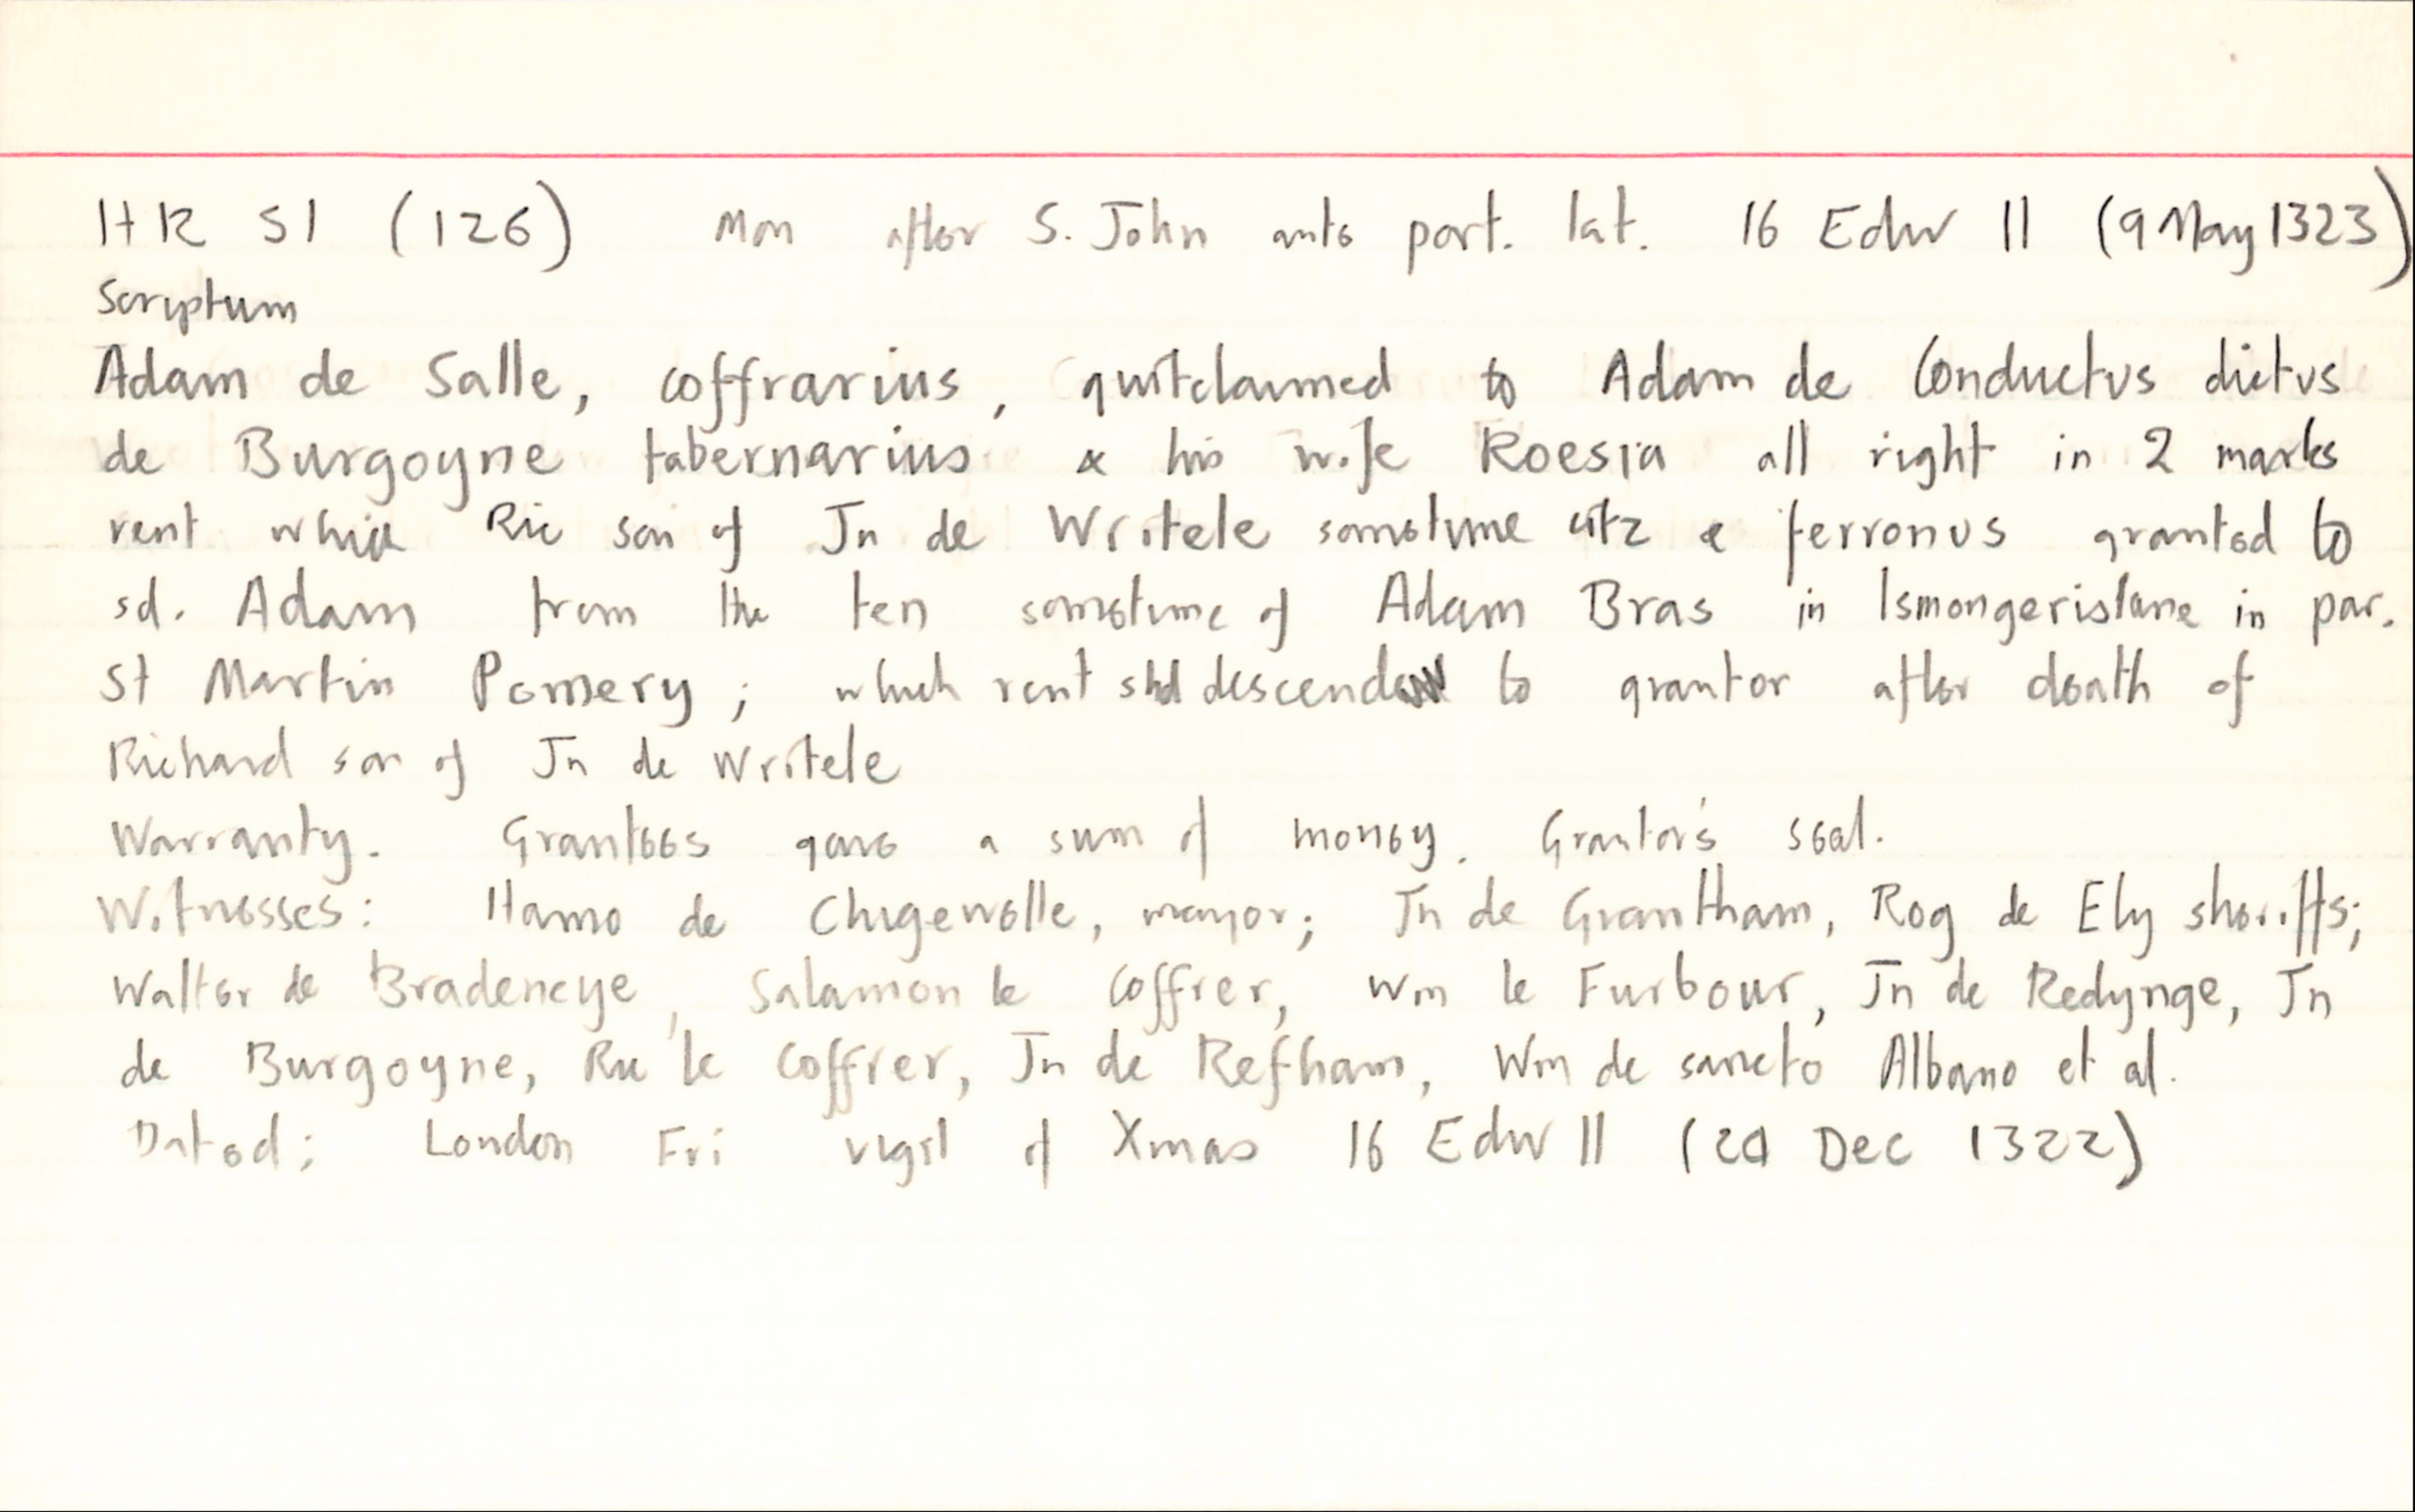 HR 51 (126) Mon after S. John ante port. lat. 16 Edw II (9 May 1323)
Scriptum
Adam de Salle, coffrarius, quitclaimed to Adam de Conductus dictus
de Burgoyne tabernarius & his wife Roesia all right in 2 marks
rent which Ric son of Jn de Writele sometime citz & ferronus granted to
sd. Adam from the ten sometime of Adam Bras in Ismongerislane in par.
St Martin Pomery; which rent shd descend to grantor after death of
Richard son of Jn de Writele
Warranty. Grantees gave a sum of money. Grantor's seal.
Witnesses: Hamo de Chigewelle, mayor; Jn de Grantham, Rog de Ely sheriffs;
Walter de Bradeneye, Salamon le Coffrer, Wm le Furbour, Jn de Redynge, Jn
de Burgoyne, Ric le Coffrer, Jn de Refham, Wm de sancto Albano et al.
Dated: London Fri vigil of Xmas 16 Edw II (24 Dec 1322)